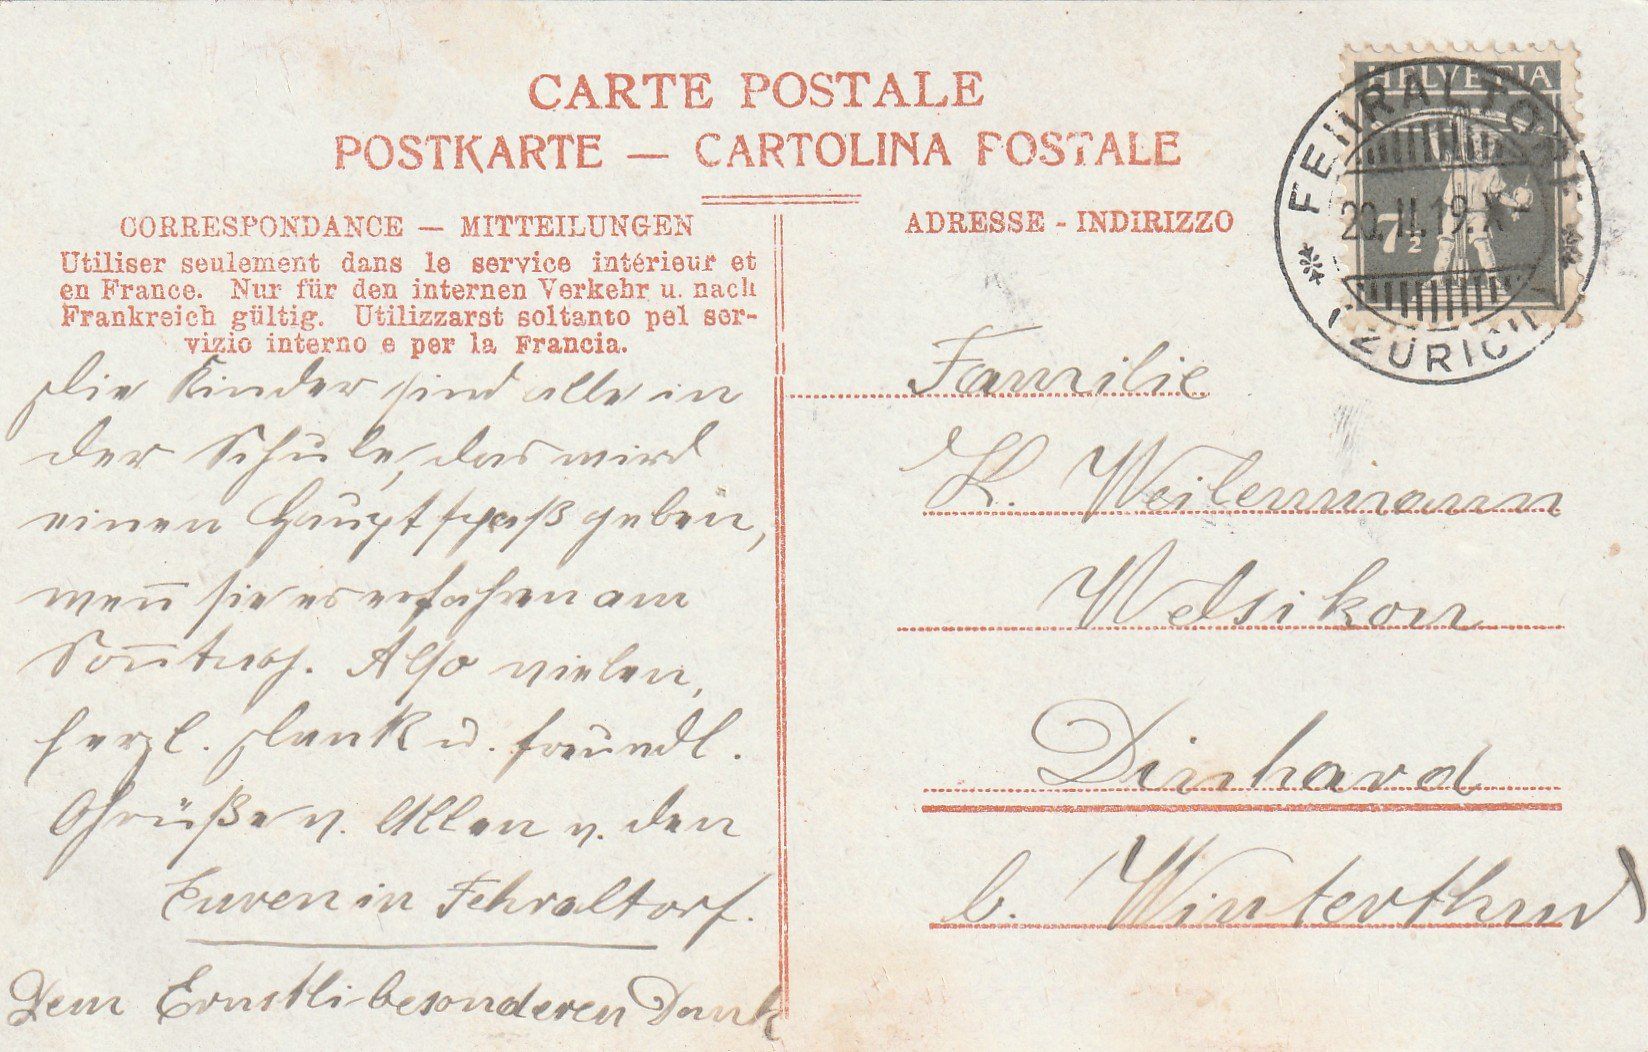 CARTE POSTALE
POSTKARTE — CARTOLINA POSTALE
CORRESPONDANCE — MITTEILUNGEN
Utiliser seulement dans le service intérieur et
en France. Nur für den internen Verkehr u. nach
Frankreich gültig. Utilizzarsi soltanto pel ser-
vizio interno e per la Francia.
Die Kinder sind alle in
der Schule, das wird
einen Hauptspaß geben,
wen̄ sie es erfahren am
Son̄tag. Also vielen,
herzl. Dank u. freundl.
Grüße v. Allen v. den
Euren in Fehraltorf.
Dem Ernstli besonderen Dank
ADRESSE - INDIRIZZO
HELVETIA
7½
FEHRALTORF
20.II.19.X
(ZÜRICH)
Familie
K. Weilenmann
Welsikon
Dinhard
b. Winterthur